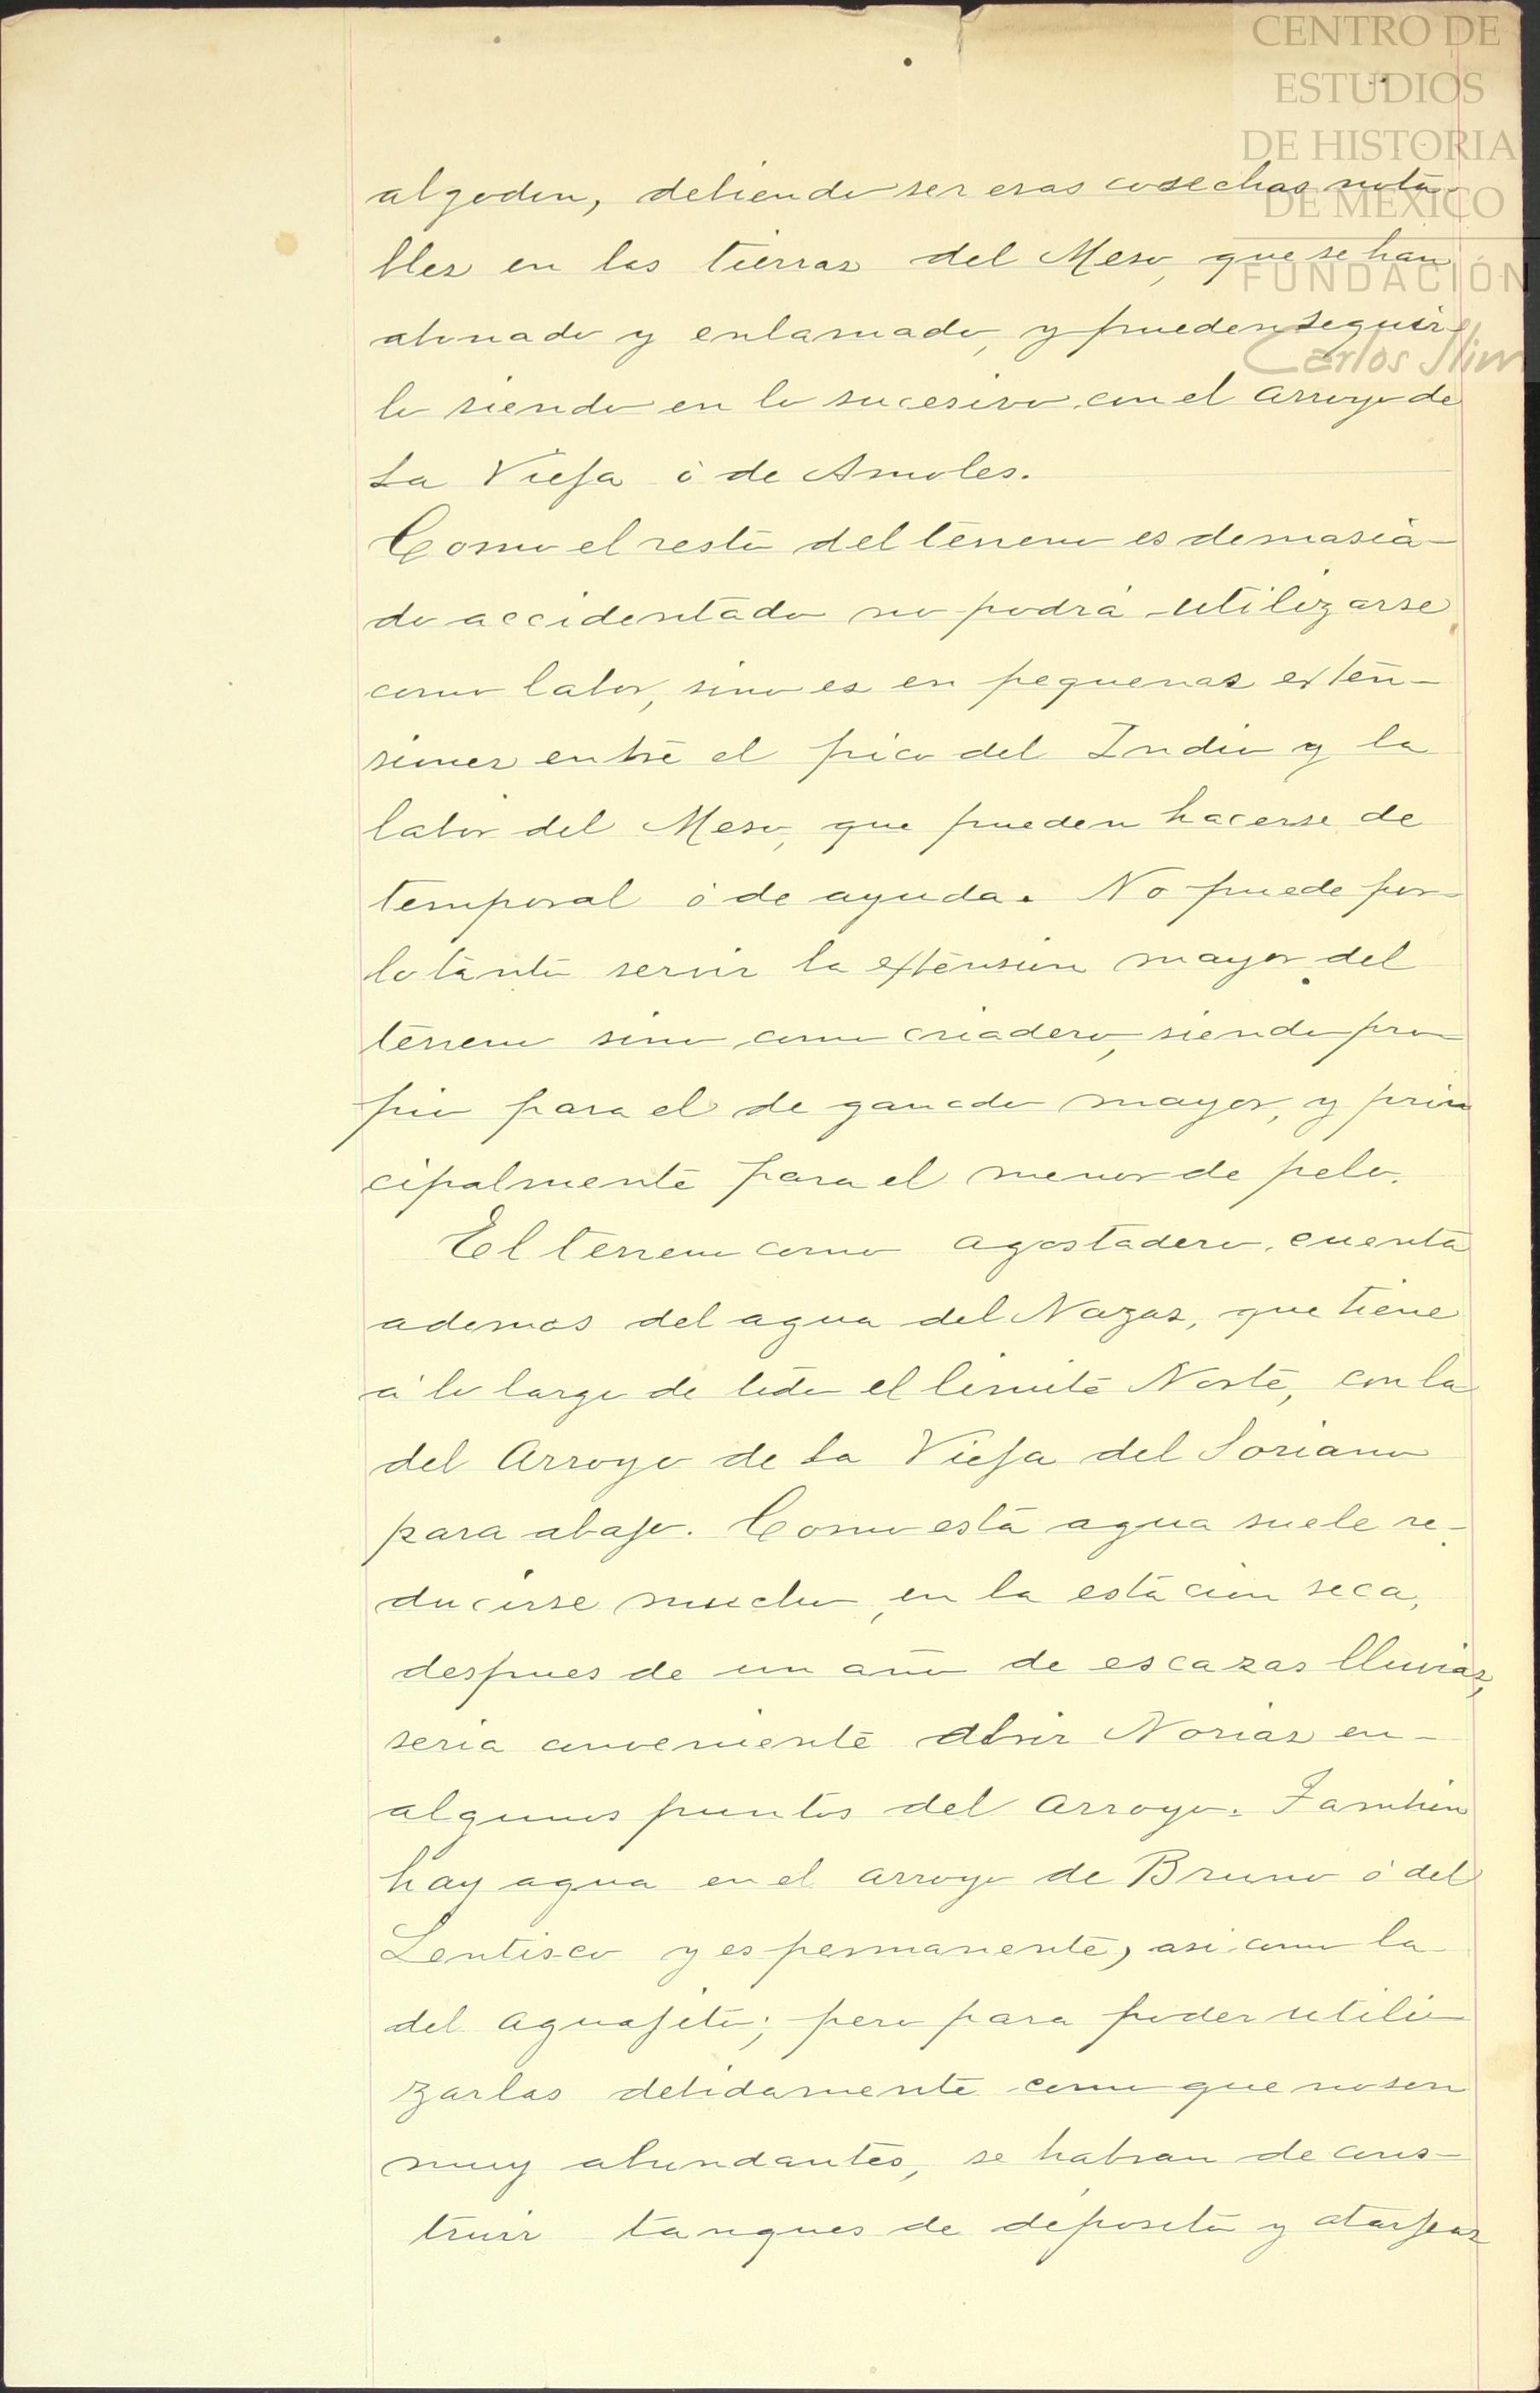 CENTRO DE
ESTUDIOS
DE HISTORIA
DE MÉXICO
FUNDACIÓN
Carlos Slim
algodon, debiendo ser esas cosechas nota-
bles en las tierras del Meso, que se han
abonado y enlamado, y pueden seguir-
lo siendo en lo sucesivo con el arroyo de
La Vieja ó de Amoles.
Como el resto del terreno es demasia-
do accidentado no podrá utilizarse
como labor, sino es en pequenas exten-
siones entre el pico del Indio y la
labor del Meso, que pueden hacerse de
temporal ó de ayuda. No puede por
lo tanto servir la extension mayor del
terreno sino como criadero, siendo pro
pio para el de ganado mayor, y prin
cipalmente para el menor de pelo.
El terreno como agostadero, cuenta
ademas del agua del Nazas, que tiene
á lo largo de todo el limite Norte, con la
del Arroyo de La Vieja del Soriano
para abajo. Como esta agua suele re-
ducirse mucho, en la estacion seca,
despues de un año de escazas lluvias,
seria conveniente abrir Norias en-
algunos puntos del arroyo. Tambien
hay agua en el arroyo de Bruno ó del
Lentisco y es permanente, asi como la
del aguajito; pero para poder utili-
zarlas debidamente como que no son
muy abundantes, se habran de cons-
truir tanques de deposito y atarjeas